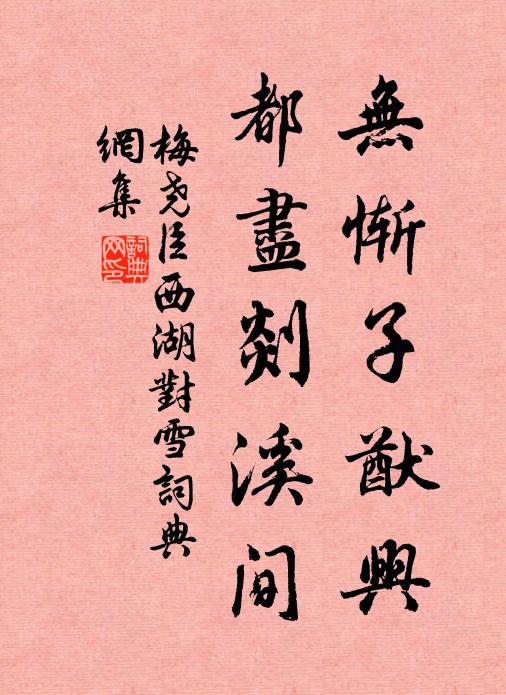 無慚子猷興
都盡剡溪間
梅尧臣西湖對雪詞典
網集
詞典
网印